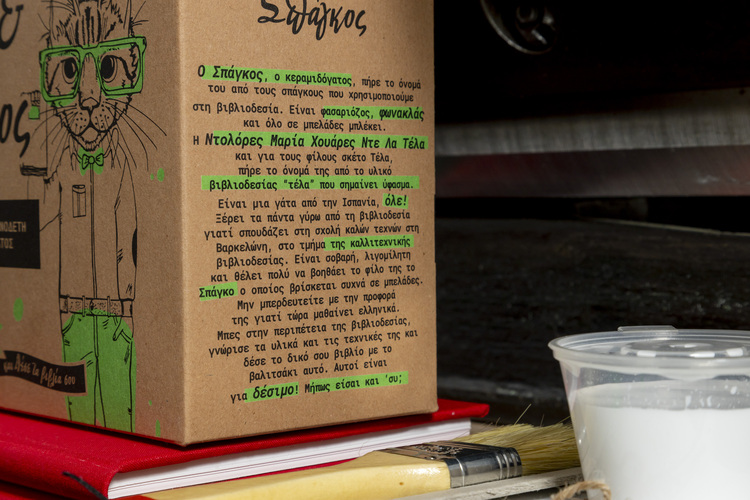 &
Σπάγκος
ος
Ο Σπάγκος, ο κεραμιδόγατος, πήρε το όνομά
του από τους σπάγκους που χρησιμοποιούμε
στη βιβλιοδεσία. Είναι φασαριόζος, φωνακλάς
και όλο σε μπελάδες μπλέκει.
Η Ντολόρες Μαρία Χουάρες Ντε Λα Τέλα
και για τους φίλους σκέτο Τέλα,
πήρε το όνομά της από το υλικό
βιβλιοδεσίας "τέλα" που σημαίνει ύφασμα.
Είναι μια γάτα από την Ισπανία, όλε!
Ξέρει τα πάντα γύρω από τη βιβλιοδεσία
γιατί σπουδάζει στη σχολή καλών τεχνών στη
Βαρκελώνη, στο τμήμα της καλλιτεχνικής
βιβλιοδεσίας. Είναι σοβαρή, λιγομίλητη
και θέλει πολύ να βοηθάει το φίλο της το
Σπάγκο ο οποίος βρίσκεται συχνά σε μπελάδες.
Μην μπερδευτείτε με την προφορά
της γιατί τώρα μαθαίνει ελληνικά.
Μπες στην περιπέτεια της βιβλιοδεσίας,
γνώρισε τα υλικά και τις τεχνικές της και
δέσε το δικό σου βιβλίο με το
βαλιτσάκι αυτό. Αυτοί είναι
για δέσιμο! Μήπως είσαι και 'συ;
ΝΟΔΕΤΗ
ΑΤΟΣ
και δέσε το βιβλίο σου